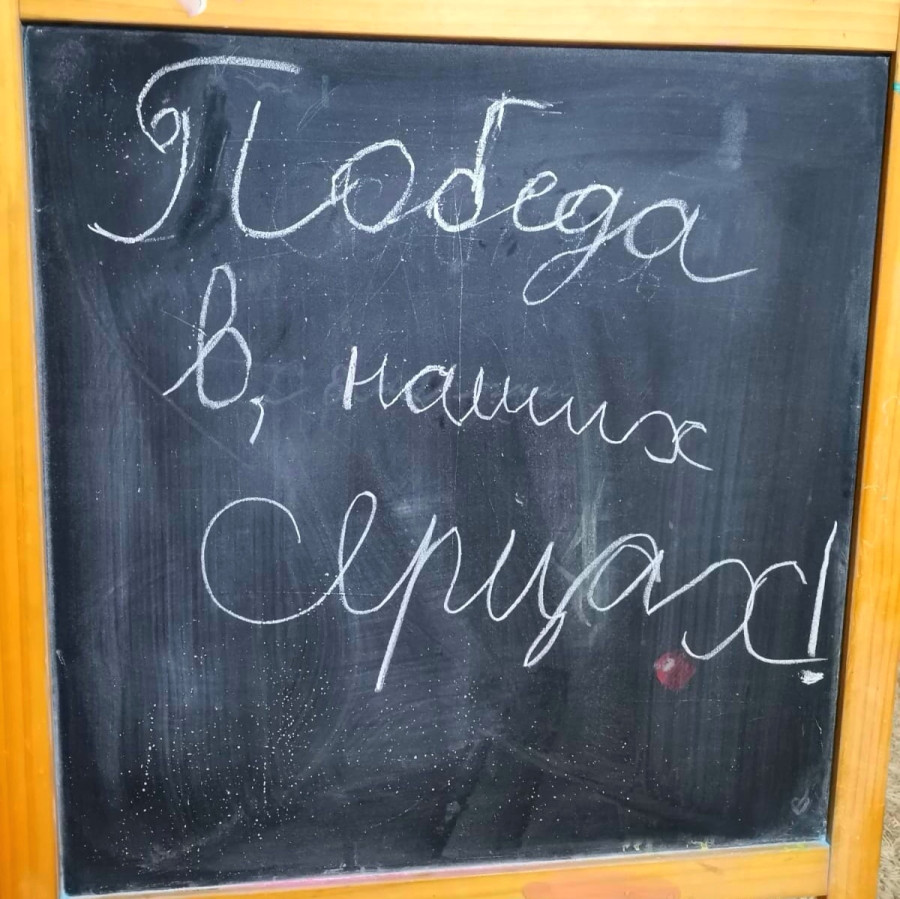 Победа
в, наших
Серцах!